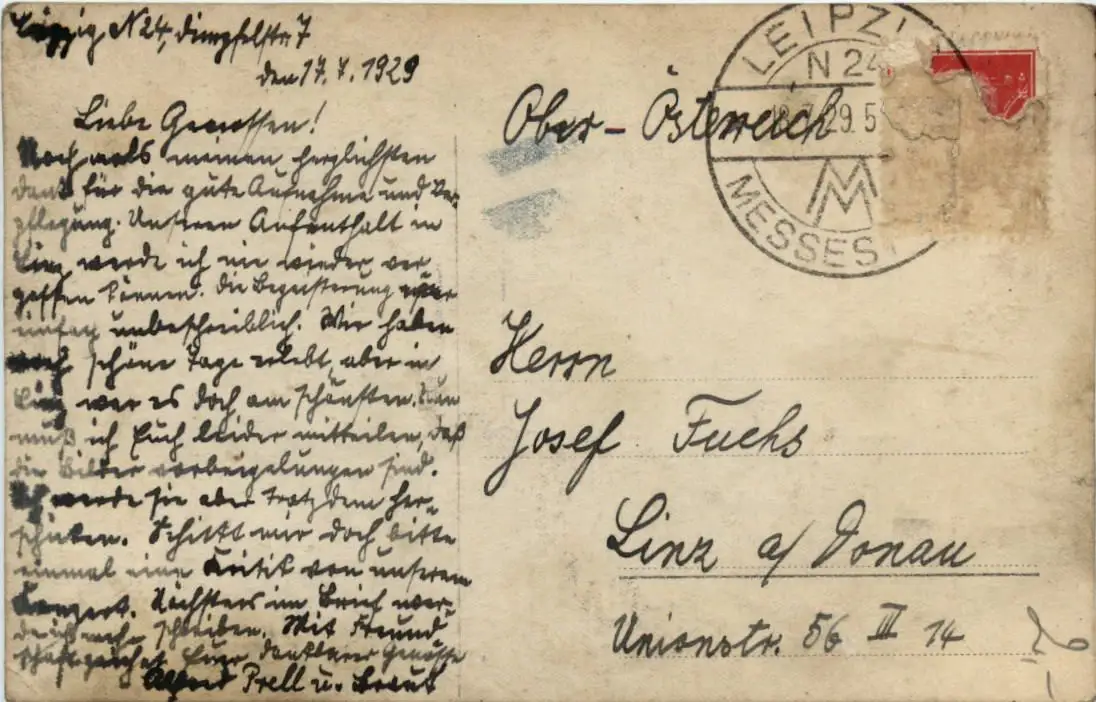 Leipzig N24, Dimpfelstr. 7
den 17.7.1929
Liebe Genossen!
Nochmals meinen herzlichsten
Dank für die gute Aufnahme und Ver-
pflegung. Unseren Aufenthalt in
Linz werde ich nie wieder ver-
gessen können. Die Begeisterung war
unbeschreiblich. Wir haben
noch schöne Tage erlebt, aber in
Linz war es doch am schönsten. Nun
muß ich Euch leider mitteilen, daß
die Bilder vorbeigelungen sind.
Ich werde sie aber trotzdem her-
schicken. Schickt mir doch bitte
einmal eine Kritik von unserem
Konzert. Nächstens im Brief wer-
de ich mehr schreiben. Mit Freund-
schaft zeichnet Euer dankbarer Genosse
Alfred Prell u. Braut
LEIPZI
N 24
29. 5
MESSES
Ober-Österreich
Herrn
Josef Fuchs
Linz a/Donau
Unionstr. 56 III 14